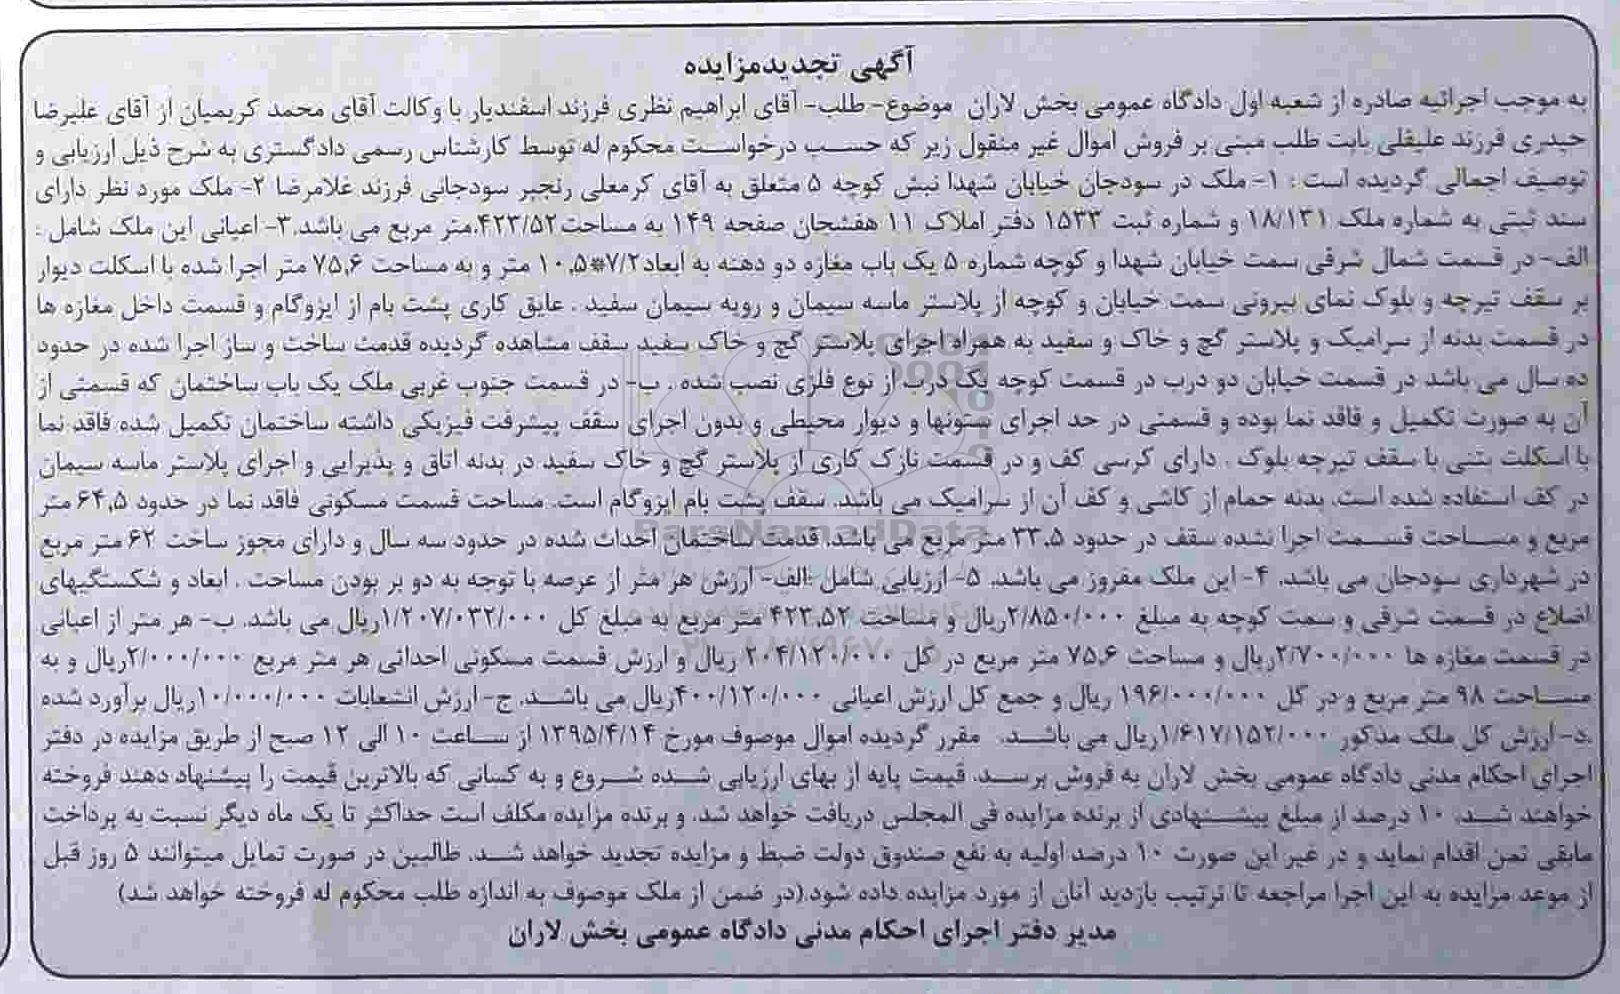 آگهی تجدیدمزایده
به موجب اجرائیه صادره از شعبه اول دادگاه عمومی بخش لاران موضوع- طلب- آقای ابراهیم نظری فرزند اسفندیار با وکالت آقای محمد کریمیان از آقای علیرضا
حیدری فرزند علیقلی بابت طلب مبنی بر فروش اموال غیر منقول زیر که حسب درخواست محکوم له توسط کارشناس رسمی دادگستری به شرح ذیل ارزیابی و
توصیف اجمالی گردیده است : ۱- ملک در سودجان خیابان شهدا نبش کوچه ۵ متعلق به آقای کرمعلی رنجبر سودجانی فرزند غلامرضا ۲- ملک مورد نظر دارای
سند ثبتی به شماره ملک ۱۸/۱۳۱ و شماره ثبت ۱۵۳۳ دفتر املاک ۱۱ هفشجان صفحه ۱۴۹ به مساحت ۴۲۳/۵۲متر مربع می باشد.۳- اعیانی این ملک شامل :
الف- در قسمت شمال شرقی سمت خیابان شهدا و کوچه شماره ۵ یک باب مغازه دو دهنه به ابعاد۷/۲*۱۰,۵ متر و به مساحت ۷۵,۶ متر اجرا شده با اسکلت دیوار
بر سقف تیرچه و بلوک نمای بیرونی سمت خیابان و کوچه از پلاستر ماسه سیمان و رویه سیمان سفید . عایق کاری پشت بام از ایزوگام و قسمت داخل مغازه ها
در قسمت بدنه از سرامیک و پلاستر گچ و خاک و سفید به همراه اجرای پلاستر گچ و خاک سفید سقف مشاهده گردیده قدمت ساخت و ساز اجرا شده در حدود
ده سال می باشد در قسمت خیابان دو درب در قسمت کوچه یک درب از نوع فلزی نصب شده . ب- در قسمت جنوب غربی ملک یک باب ساختمان که قسمتی از
آن به صورت تکمیل و فاقد نما بوده و قسمتی در حد اجرای ستونها و دیوار محیطی و بدون اجرای سقف پیشرفت فیزیکی داشته ساختمان تکمیل شده فاقد نما
با اسکلت بتنی با سقف تیرچه بلوک . دارای کرسی کف و در قسمت نازک کاری از پلاستر گچ و خاک سفید در بدنه اتاق و پذیرایی و اجرای پلاستر ماسه سیمان
در کف استفاده شده است. بدنه حمام از کاشی و کف آن از سرامیک می باشد. سقف پشت بام ایزوگام است. مساحت قسمت مسکونی فاقد نما در حدود ۶۴,۵ متر
مربع و مساحت قسمت اجرا نشده سقف در حدود ۳۳,۵ متر مربع می باشد. قدمت ساختمان احداث شده در حدود سه سال و دارای مجوز ساخت ۶۲ متر مربع
در شهرداری سودجان می باشد. ۴- این ملک مفروز می باشد. ۵- ارزیابی شامل :الف- ارزش هر متر از عرصه با توجه به دو بر بودن مساحت ، ابعاد و شکستگیهای
اضلاع در قسمت شرقی و سمت کوچه به مبلغ ۲/۸۵۰/۰۰۰ریال و مساحت ۴۲۳,۵۲ متر مربع به مبلغ کل ۱/۲۰۷/۰۳۲/۰۰۰ریال می باشد. ب- هر متر از اعیانی
در قسمت مغازه ها ۲/۷۰۰/۰۰۰ریال و مساحت ۷۵,۶ متر مربع در کل ۲۰۴/۱۲۰/۰۰۰ ریال و ارزش قسمت مسکونی احداثی هر متر مربع ۲/۰۰۰/۰۰۰ریال و به
مساحت ۹۸ متر مربع و در کل ۱۹۶/۰۰۰/۰۰۰ ریال و جمع کل ارزش اعیانی ۴۰۰/۱۲۰/۰۰۰ریال می باشد. ج- ارزش انشعابات ۱۰/۰۰۰/۰۰۰ریال برآورد شده
.د- ارزش کل ملک مذکور ۱/۶۱۷/۱۵۲/۰۰۰ریال می باشد. مقرر گردیده اموال موصوف مورخ ۱۳۹۵/۴/۱۴ از ساعت ۱۰ الی ۱۲ صبح از طریق مزایده در دفتر
اجرای احکام مدنی دادگاه عمومی بخش لاران به فروش برسد. قیمت پایه از بهای ارزیابی شده شروع و به کسانی که بالاترین قیمت را پیشنهاد دهند فروخته
خواهند شد. ۱۰ درصد از مبلغ پیشنهادی از برنده مزایده فی المجلس دریافت خواهد شد. و برنده مزایده مکلف است حداکثر تا یک ماه دیگر نسبت به پرداخت
مابقی ثمن اقدام نماید و در غیر این صورت ۱۰ درصد اولیه به نفع صندوق دولت ضبط و مزایده تجدید خواهد شد. طالبین در صورت تمایل میتوانند ۵ روز قبل
از موعد مزایده به این اجرا مراجعه تا ترتیب بازدید آنان از مورد مزایده داده شود.(در ضمن از ملک موصوف به اندازه طلب محکوم له فروخته خواهد شد)
مدیر دفتر اجرای احکام مدنی دادگاه عمومی بخش لاران
ParsNamadData